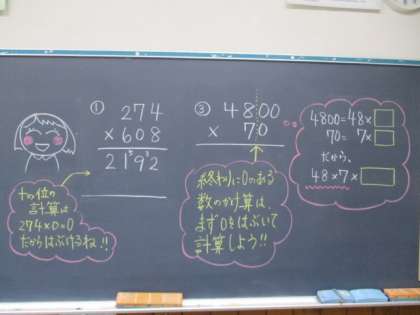 ① 274
× 608
2192
十の位の
計算は
274×0=0
だからはぶけるね!!
③ 4800
× 70
終わりに0のある
数のかけ算は、
まず0をはぶいて
計算しよう!!
4800=48×□
70= 7×□
だから、
48×7×□